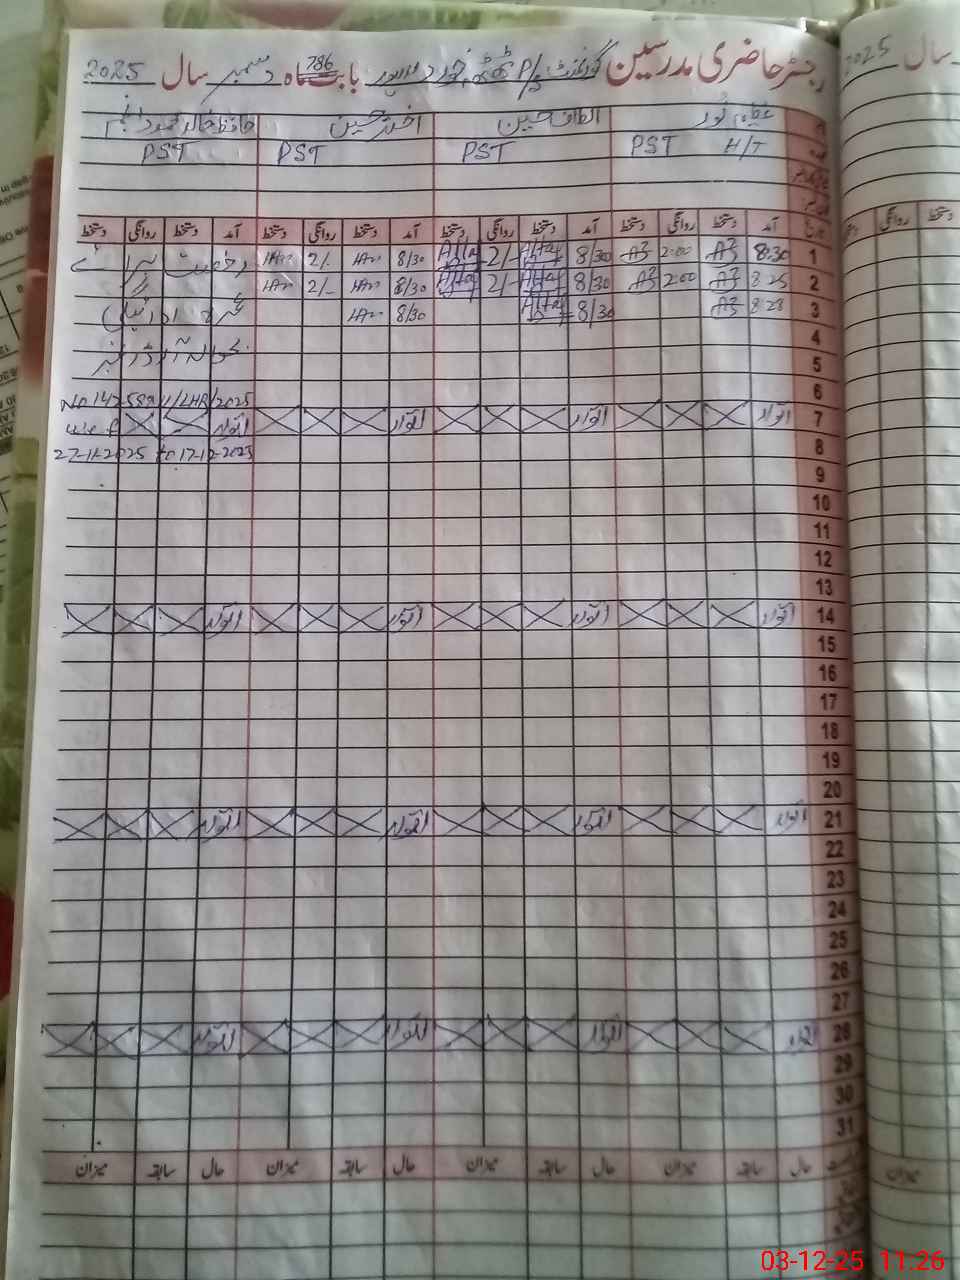 رجسٹر حاضری مدرسین گورنمنٹ P/S ٹھٹھہ خورد بابت ماہ 786 دسمبر سال 2025
سال 2025
غلام نور الطاف حسین اختر حسین حافظ خالد محمود انجم
PST H/T PST PST PST
آمد دستخط روانگی دستخط آمد دستخط روانگی دستخط آمد دستخط روانگی دستخط آمد دستخط روانگی دستخط
دستخط روانگی
1 8:30 2:00 8/30 Altaf 2/- Altaf 8/30 2/- رخصت برائے
2 8:25 2:00 8/30 Altaf 2/- Altaf 8/30 2/-
3 8:28 8/30 Altaf 8/30 عمرہ ادائیگی
4
بحوالہ آرڈر نمبر
5
6
No 142589 /LHR/2025
7 اتوار اتوار اتوار اتوار w.e.f
8 27-11-2025 to 17-12-2025
9
10
11
12
13
14 اتوار اتوار اتوار اتوار
15
16
17
18
19
20
21 اتوار اتوار اتوار اتوار
22
23
24
25
26
27
28 اتوار اتوار اتوار اتوار
29
30
31
حال سابقہ میزان حال سابقہ میزان حال سابقہ میزان حال سابقہ میزان
میزان
03-12-25 11:26